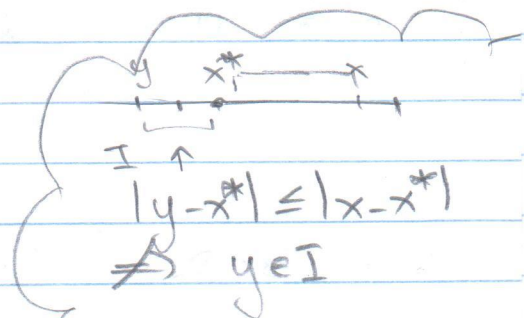 y x* x
I ↑
|y-x*| ≤ |x-x*|
⇏ y∈I